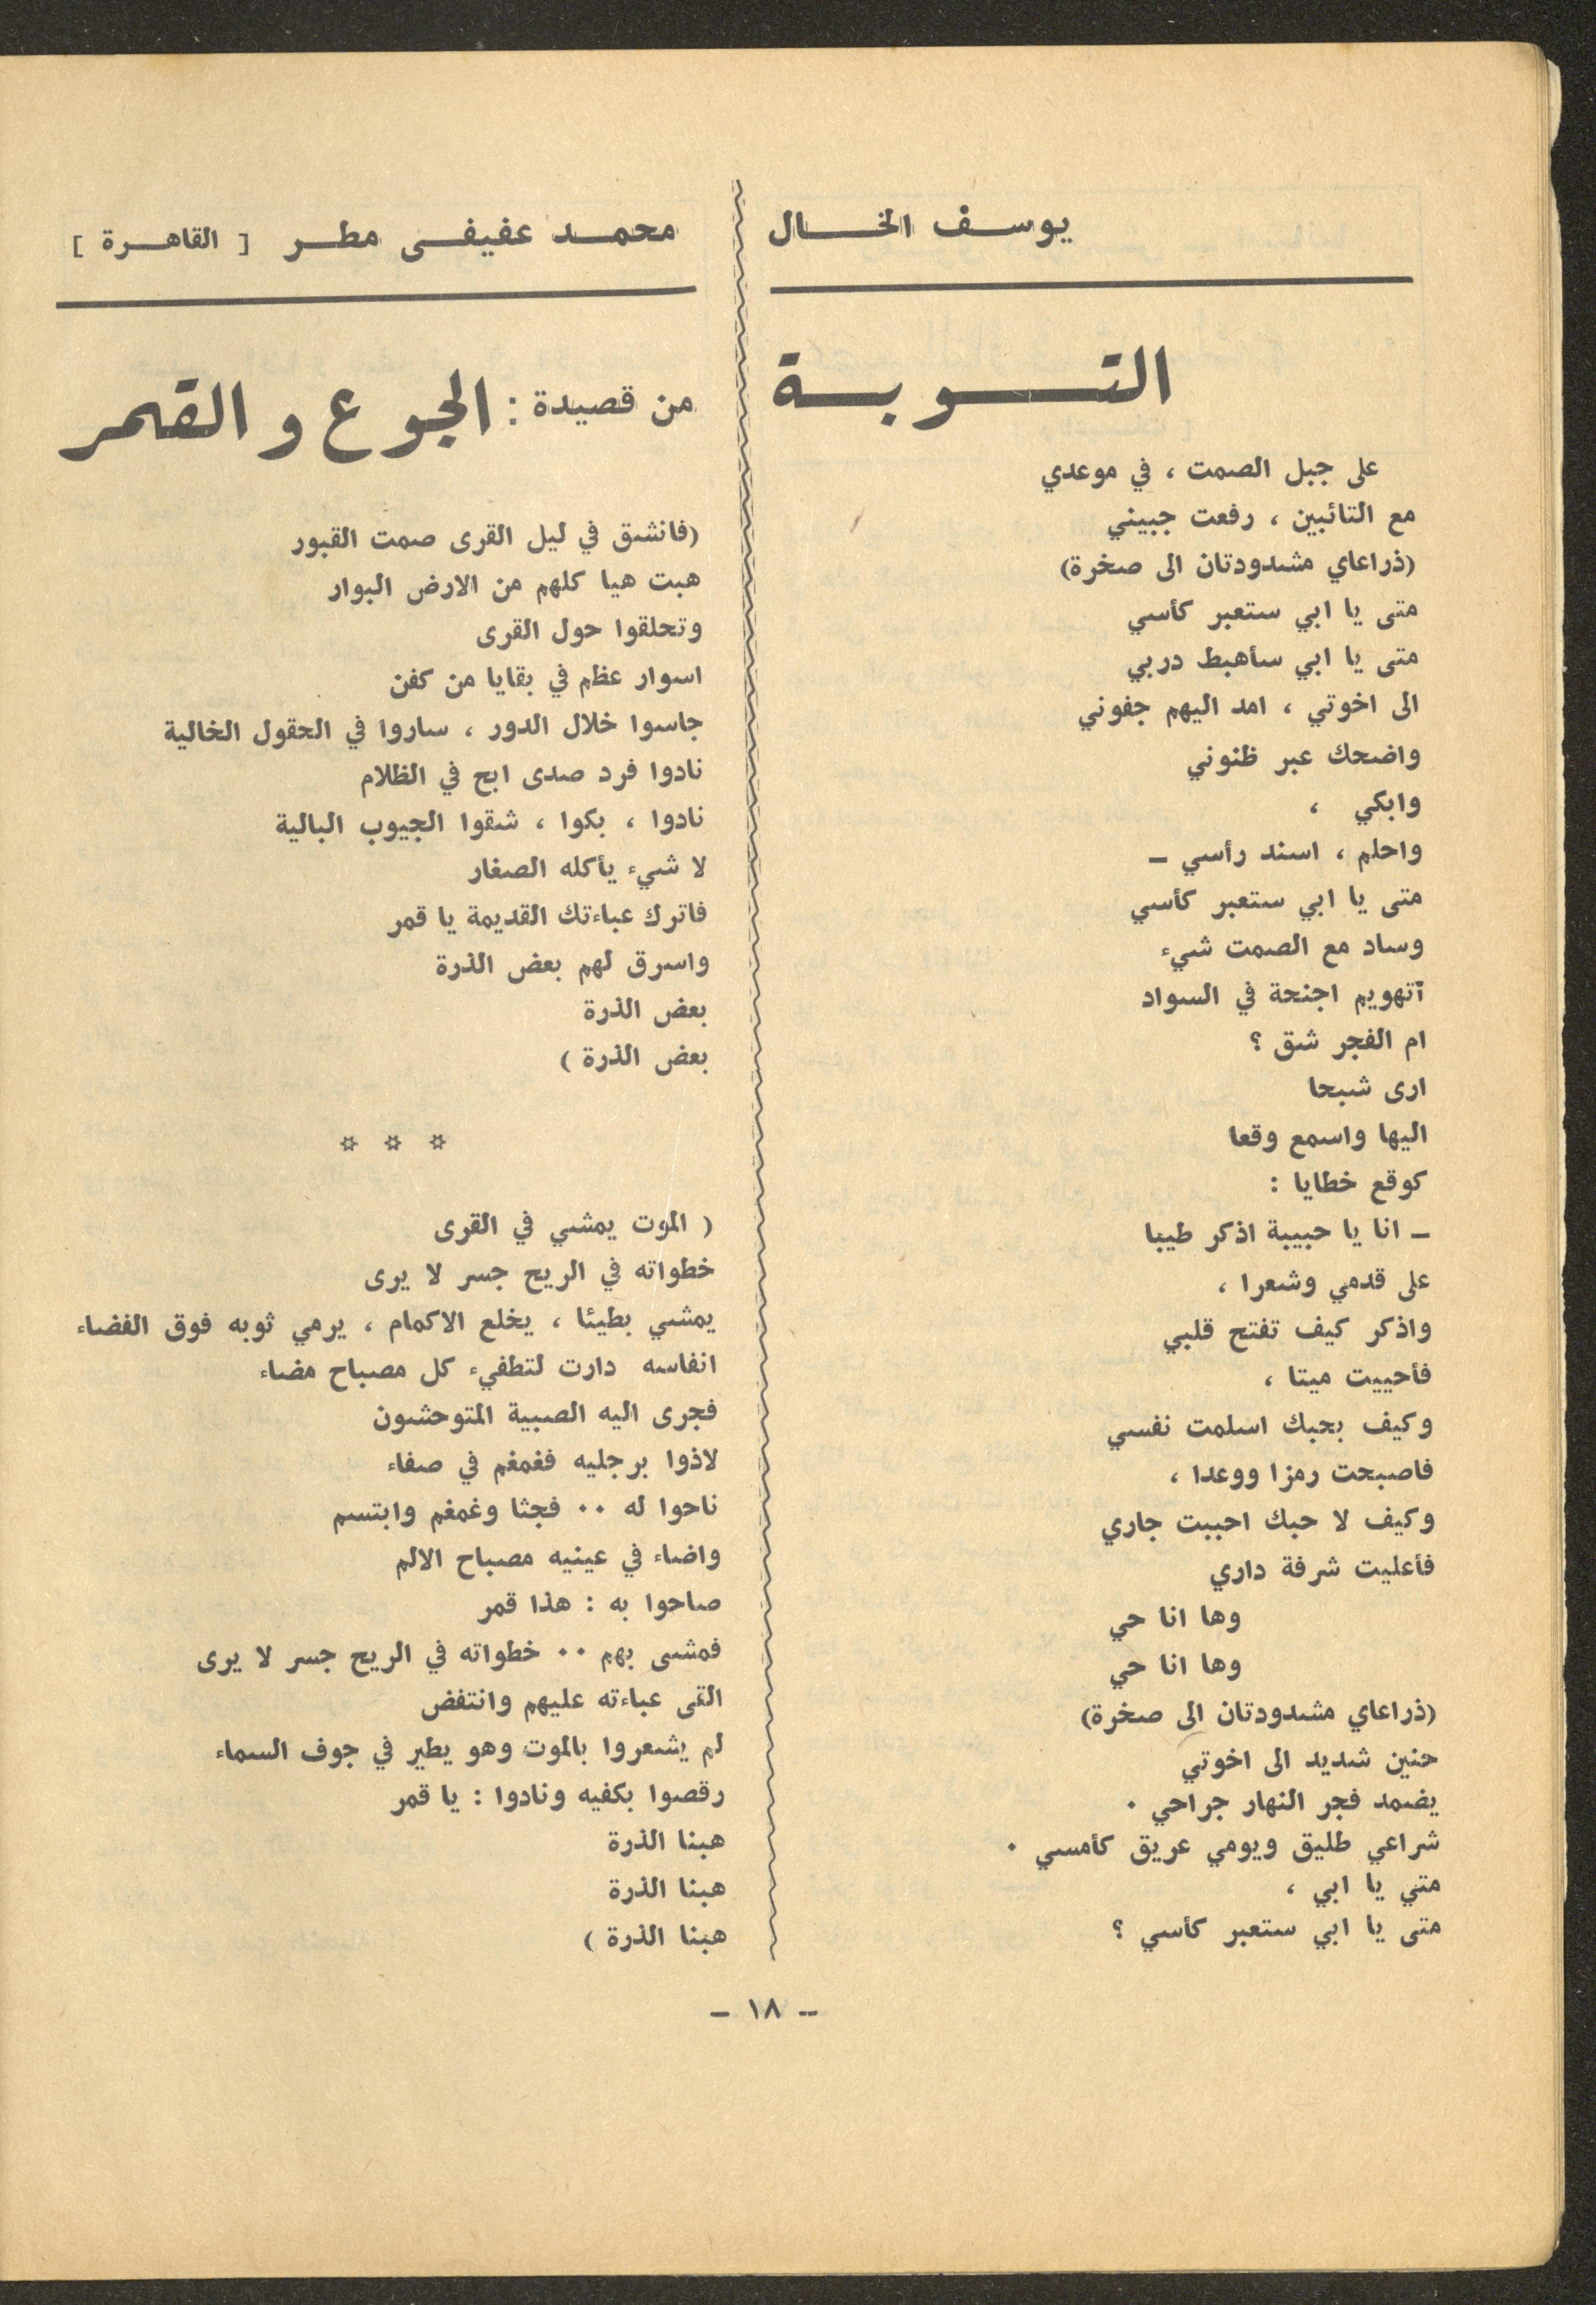 يوسف الخال
التوبة
على جبل الصمت ، في موعدي
مع التائبين ، رفعت جبيني
(ذراعاي مشدودتان الى صخرة)
متى يا ابي ستعبر كأسي
متى يا ابي سأهبط دربي
الى اخوتي ، امد اليهم جفوني
واضحك عبر ظنوني
وابكي ،
واحلم ، اسند رأسي –
متى يا ابي ستعبر كأسي
وساد مع الصمت شيء
آتهويم اجنحة في السواد
ام الفجر شق ؟
ارى شبحا
اليها واسمع وقعا
كوقع خطايا :
– انا يا حبيبة اذكر طيبا
على قدمي وشعرا ،
واذكر كيف تفتح قلبي
فأحييت ميتا ،
وكيف بحبك اسلمت نفسي
فاصبحت رمزا ووعدا ،
وكيف لا حبك احببت جاري
فأعليت شرفة داري
وها انا حي
وها انا حي
(ذراعاي مشدودتان الى صخرة)
حنين شديد الى اخوتي
يضمد فجر النهار جراحي .
شراعي طليق ويومي عريق كأمسي .
متي يا ابي ،
متى يا ابي ستعبر كأسي ؟
محمد عفيفى مطر [ القاهرة ]
من قصيدة : الجوع والقمر
(فانشق في ليل القرى صمت القبور
هبت هيا كلهم من الارض البوار
وتحلقوا حول القرى
اسوار عظم في بقايا من كفن
جاسوا خلال الدور ، ساروا في الحقول الخالية
نادوا فرد صدى ابح في الظلام
نادوا ، بكوا ، شقوا الجيوب البالية
لا شيء يأكله الصغار
فاترك عباءتك القديمة يا قمر
واسرق لهم بعض الذرة
بعض الذرة
بعض الذرة )
* * *
( الموت يمشي في القرى
خطواته في الريح جسر لا يرى
يمشي بطيئا ، يخلع الاكمام ، يرمي ثوبه فوق الفضاء
انفاسه دارت لتطفيء كل مصباح مضاء
فجرى اليه الصبية المتوحشون
لاذوا برجليه فغمغم في صفاء
ناحوا له .. فجثا وغمغم وابتسم
واضاء في عينيه مصباح الالم
صاحوا به : هذا قمر
فمشى بهم .. خطواته في الريح جسر لا يرى
القى عباءته عليهم وانتفض
لم يشعروا بالموت وهو يطير في جوف السماء
رقصوا بكفيه ونادوا : يا قمر
هبنا الذرة
هبنا الذرة
هبنا الذرة )
– ١٨ –